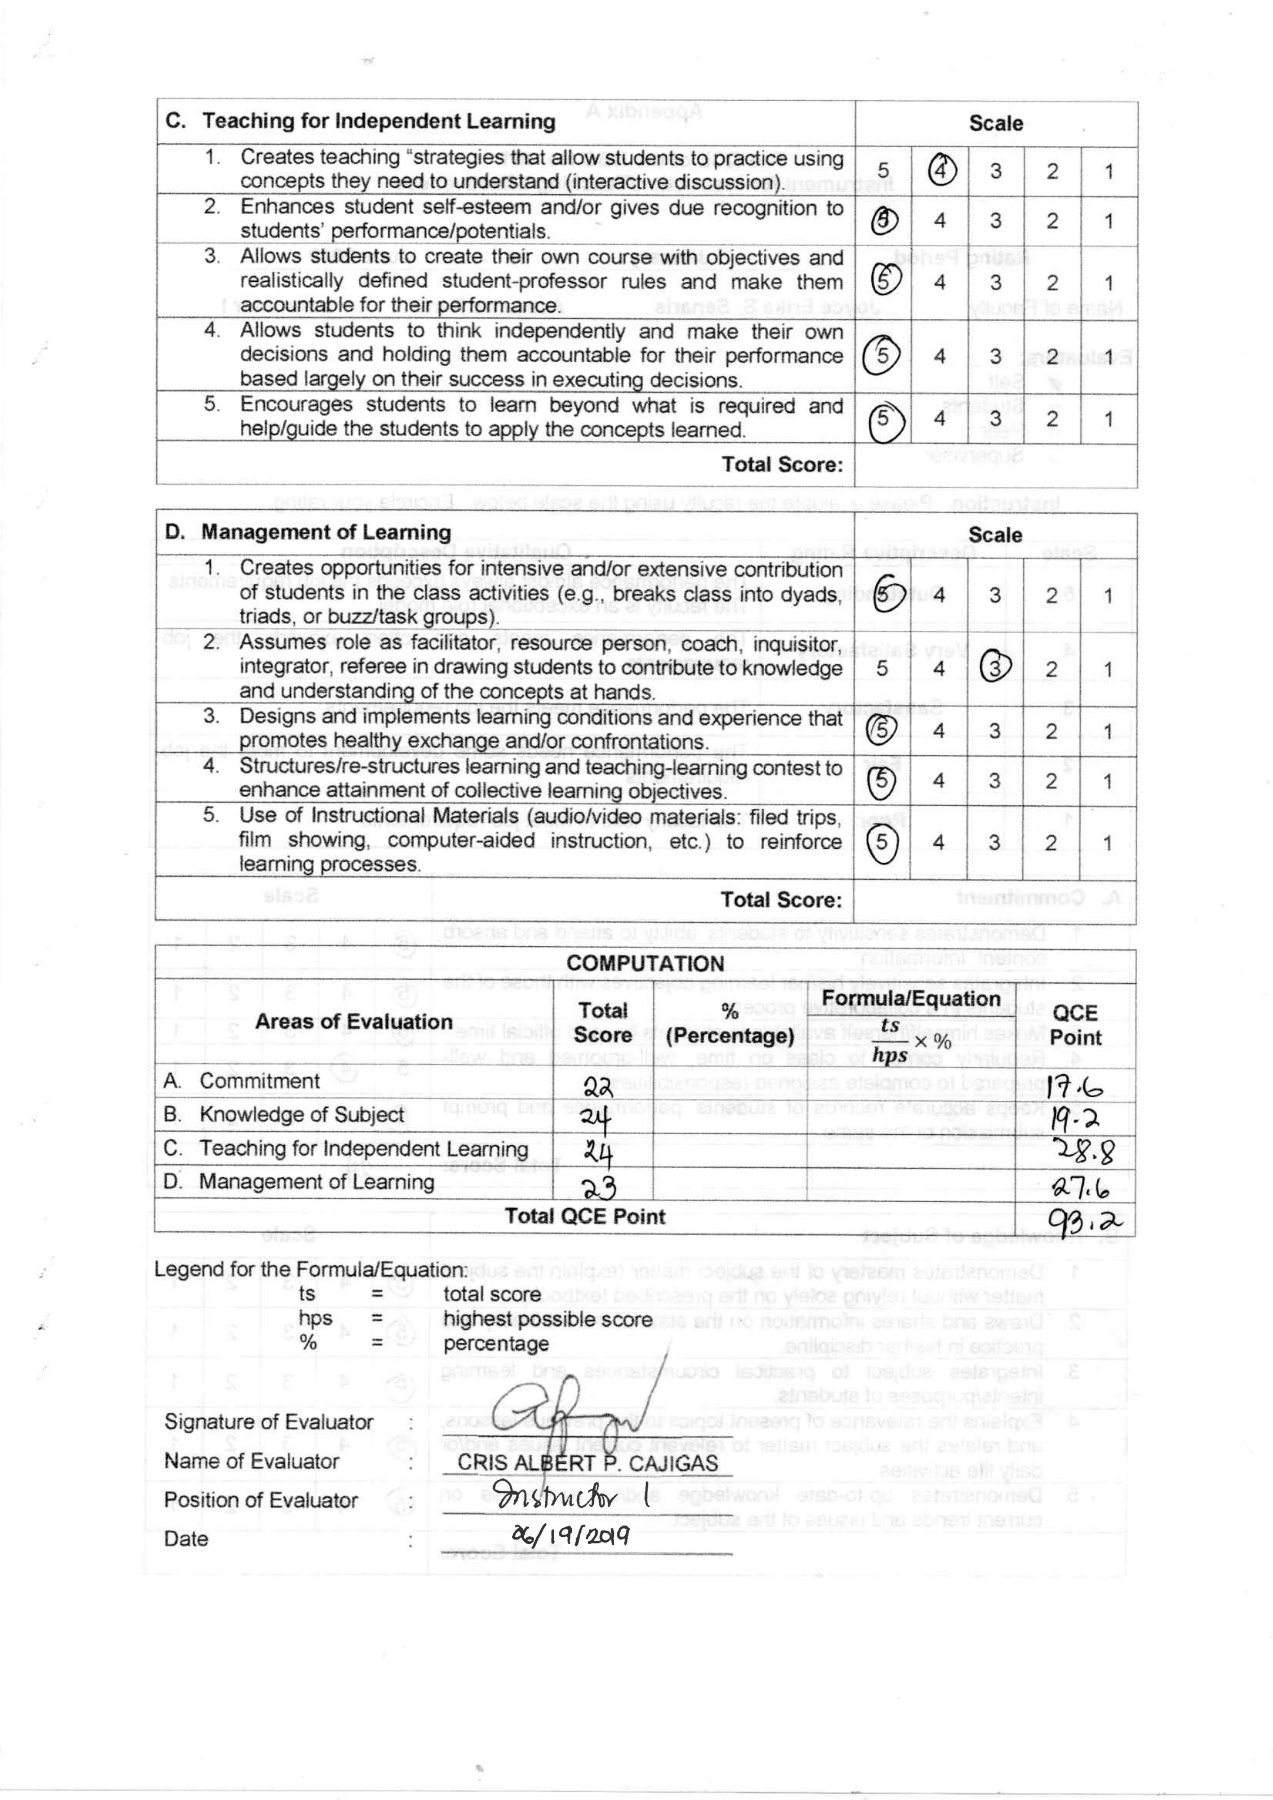 C. Teaching for Independent Learning Scale
1. Creates teaching “strategies that allow students to practice using 5 4 3 2 1
concepts they need to understand (interactive discussion).
2. Enhances student self-esteem and/or gives due recognition to 5 4 3 2 1
students’ performance/potentials.
3. Allows students to create their own course with objectives and
realistically defined student-professor rules and make them 5 4 3 2 1
accountable for their performance.
4. Allows students to think independently and make their own
decisions and holding them accountable for their performance 5 4 3 2 1
based largely on their success in executing decisions.
5. Encourages students to learn beyond what is required and 5 4 3 2 1
help/guide the students to apply the concepts learned.
Total Score:
D. Management of Learning Scale
1. Creates opportunities for intensive and/or extensive contribution
of students in the class activities (e.g., breaks class into dyads, 5 4 3 2 1
triads, or buzz/task groups).
2. Assumes role as facilitator, resource person, coach, inquisitor,
integrator, referee in drawing students to contribute to knowledge 5 4 3 2 1
and understanding of the concepts at hands.
3. Designs and implements learning conditions and experience that 5 4 3 2 1
promotes healthy exchange and/or confrontations.
4. Structures/re-structures learning and teaching-learning contest to 5 4 3 2 1
enhance attainment of collective learning objectives.
5. Use of Instructional Materials (audio/video materials: filed trips,
film showing, computer-aided instruction, etc.) to reinforce 5 4 3 2 1
learning processes.
Total Score:
COMPUTATION
Areas of Evaluation Total Score % (Percentage) Formula/Equation ts/hps × % QCE Point
A. Commitment 22 17.6
B. Knowledge of Subject 24 19.2
C. Teaching for Independent Learning 24 28.8
D. Management of Learning 23 27.6
Total QCE Point 93.2
Legend for the Formula/Equation:
ts = total score
hps = highest possible score
% = percentage
Signature of Evaluator :
Name of Evaluator : CRIS ALBERT P. CAJIGAS
Position of Evaluator : Instructor 1
Date : 06/19/2019